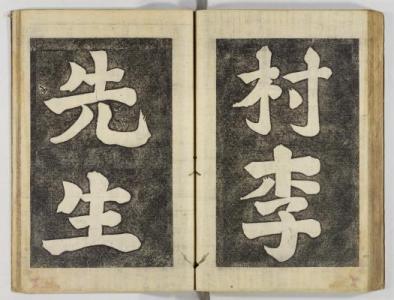 村李
先生